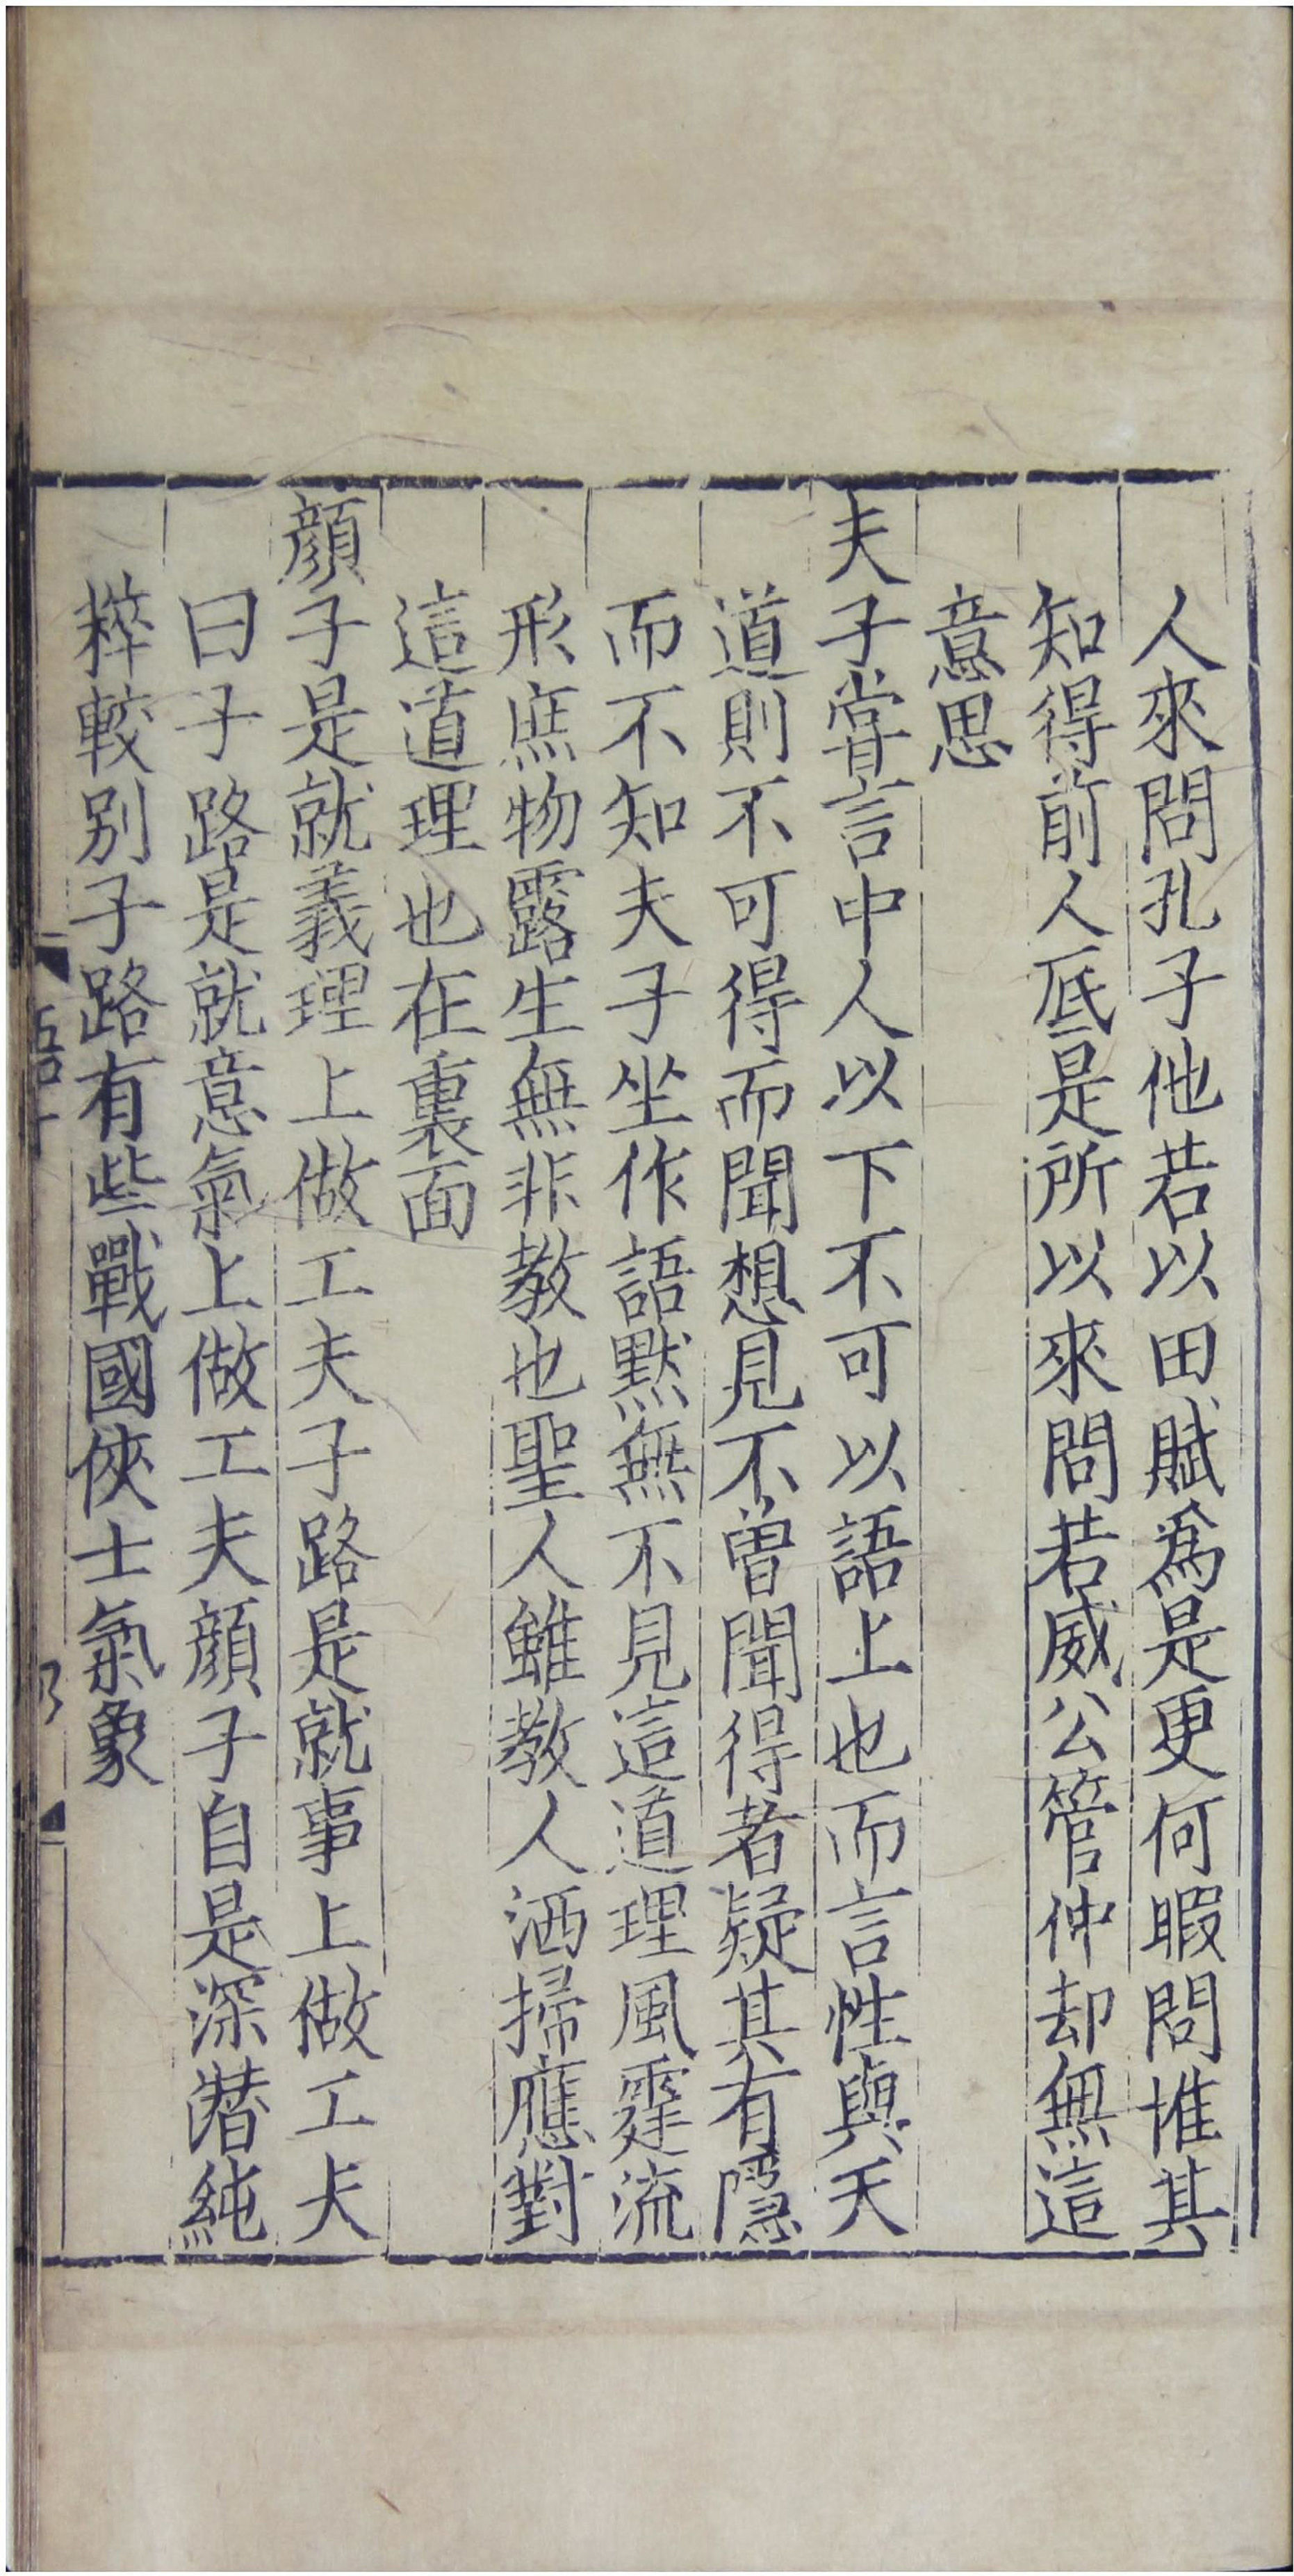 人來問孔子他若以田賦爲是更何暇問惟其
知得前人底是所以來問若威公管仲却無這
意思
夫子甞言中人以下不可以語上也而言性與天
道則不可得而聞想見不曽聞得者疑其有隱
而不知夫子坐作語黙無不見這道理風霆流
形庶物露生無非教也聖人雖教人洒掃應對
這道理也在裏面
顔子是就義理上做工夫子路是就事上做工夫
曰子路是就意氣上做工夫顔子自是深潜純
粹較别子路有些戰國俠士氣象